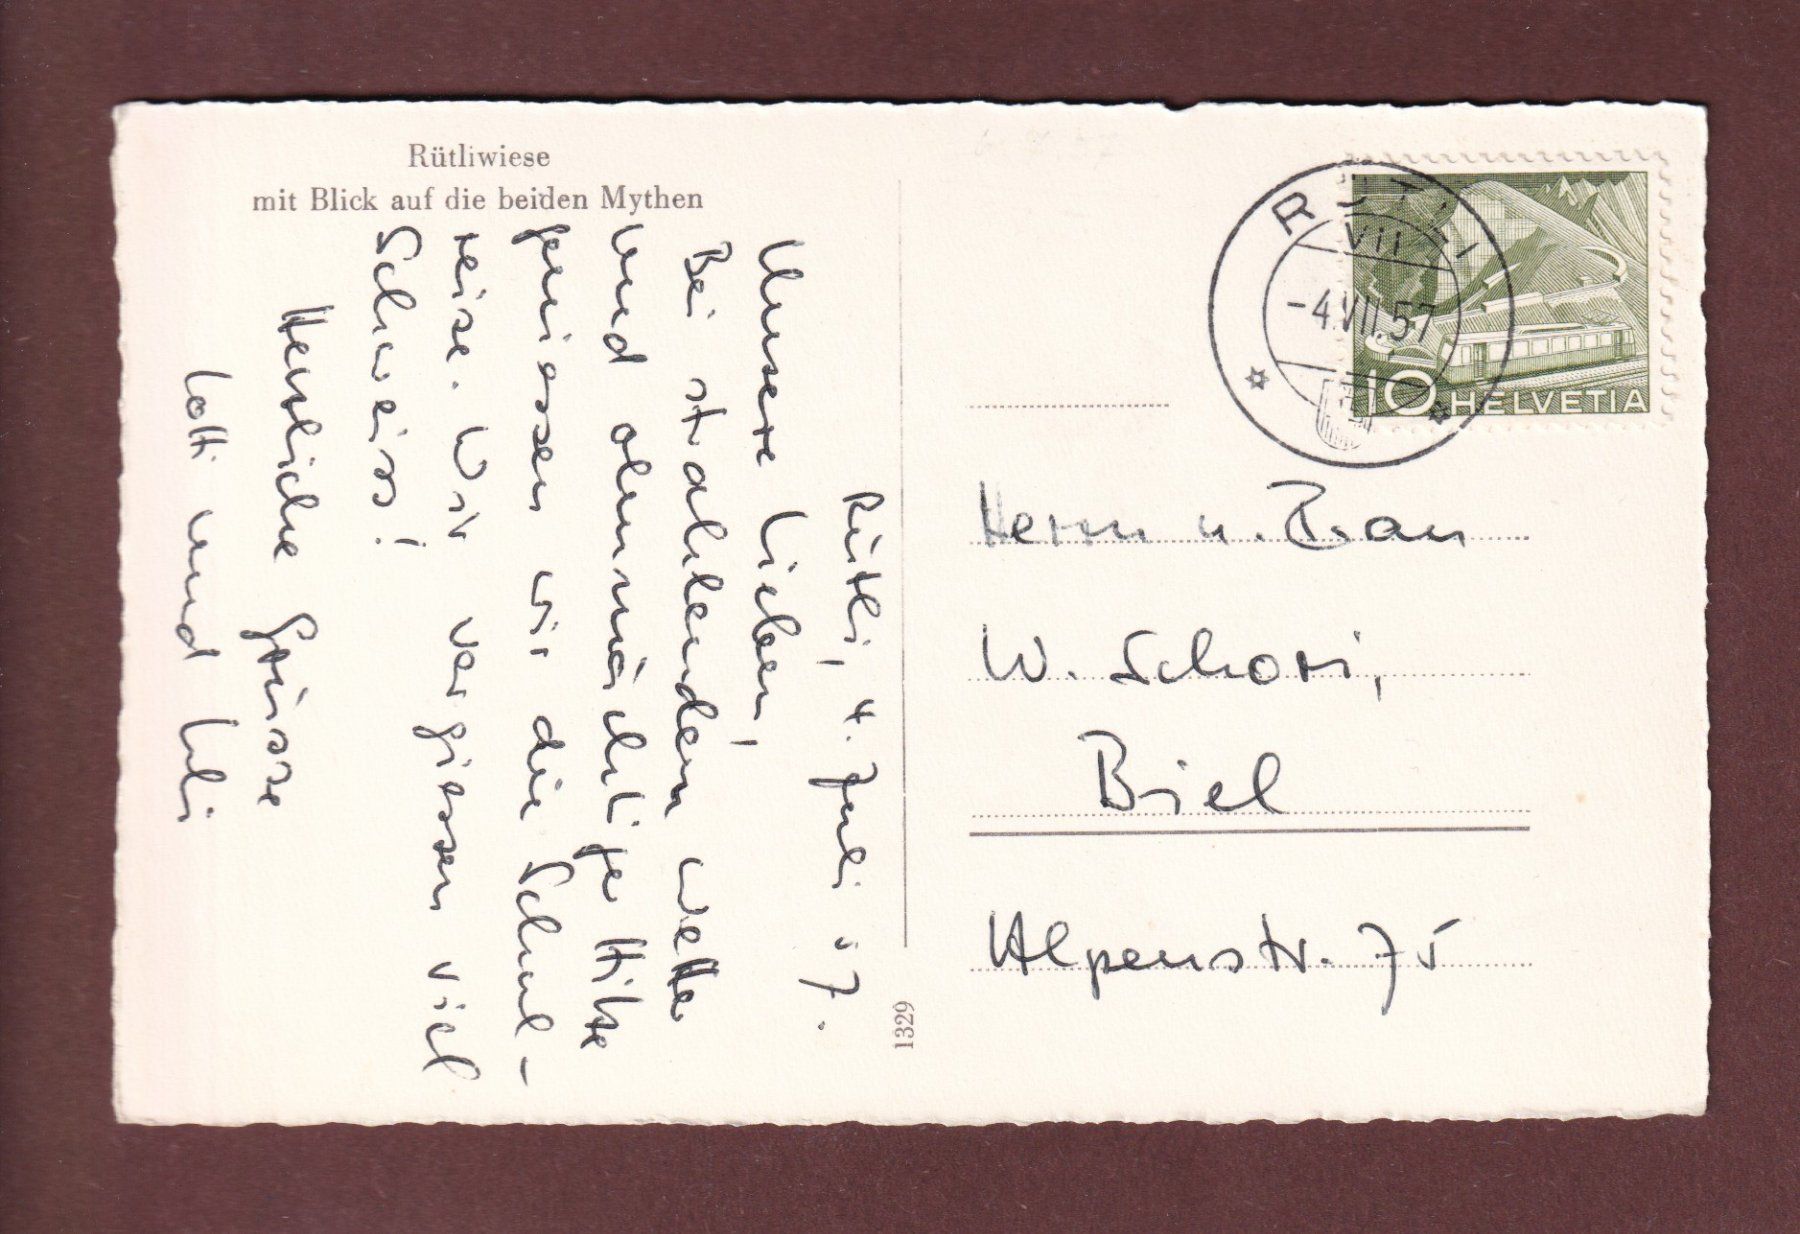 Rütliwiese
mit Blick auf die beiden Mythen
Rütli, 4. Juli 57.
Unsere Lieben,
Bei strahlendem Wetter
und ohnmächtiger Hitze
geniessen wir die Schul-
reise. Wir vergiessen viel
Schweiss!
Herzliche Grüsse
Lotti und Ueli
1329
RÜTLI
VII
-4.VII.57
10 HELVETIA
Herrn u. Frau
W. Schori,
Biel
Alpenstr. 75